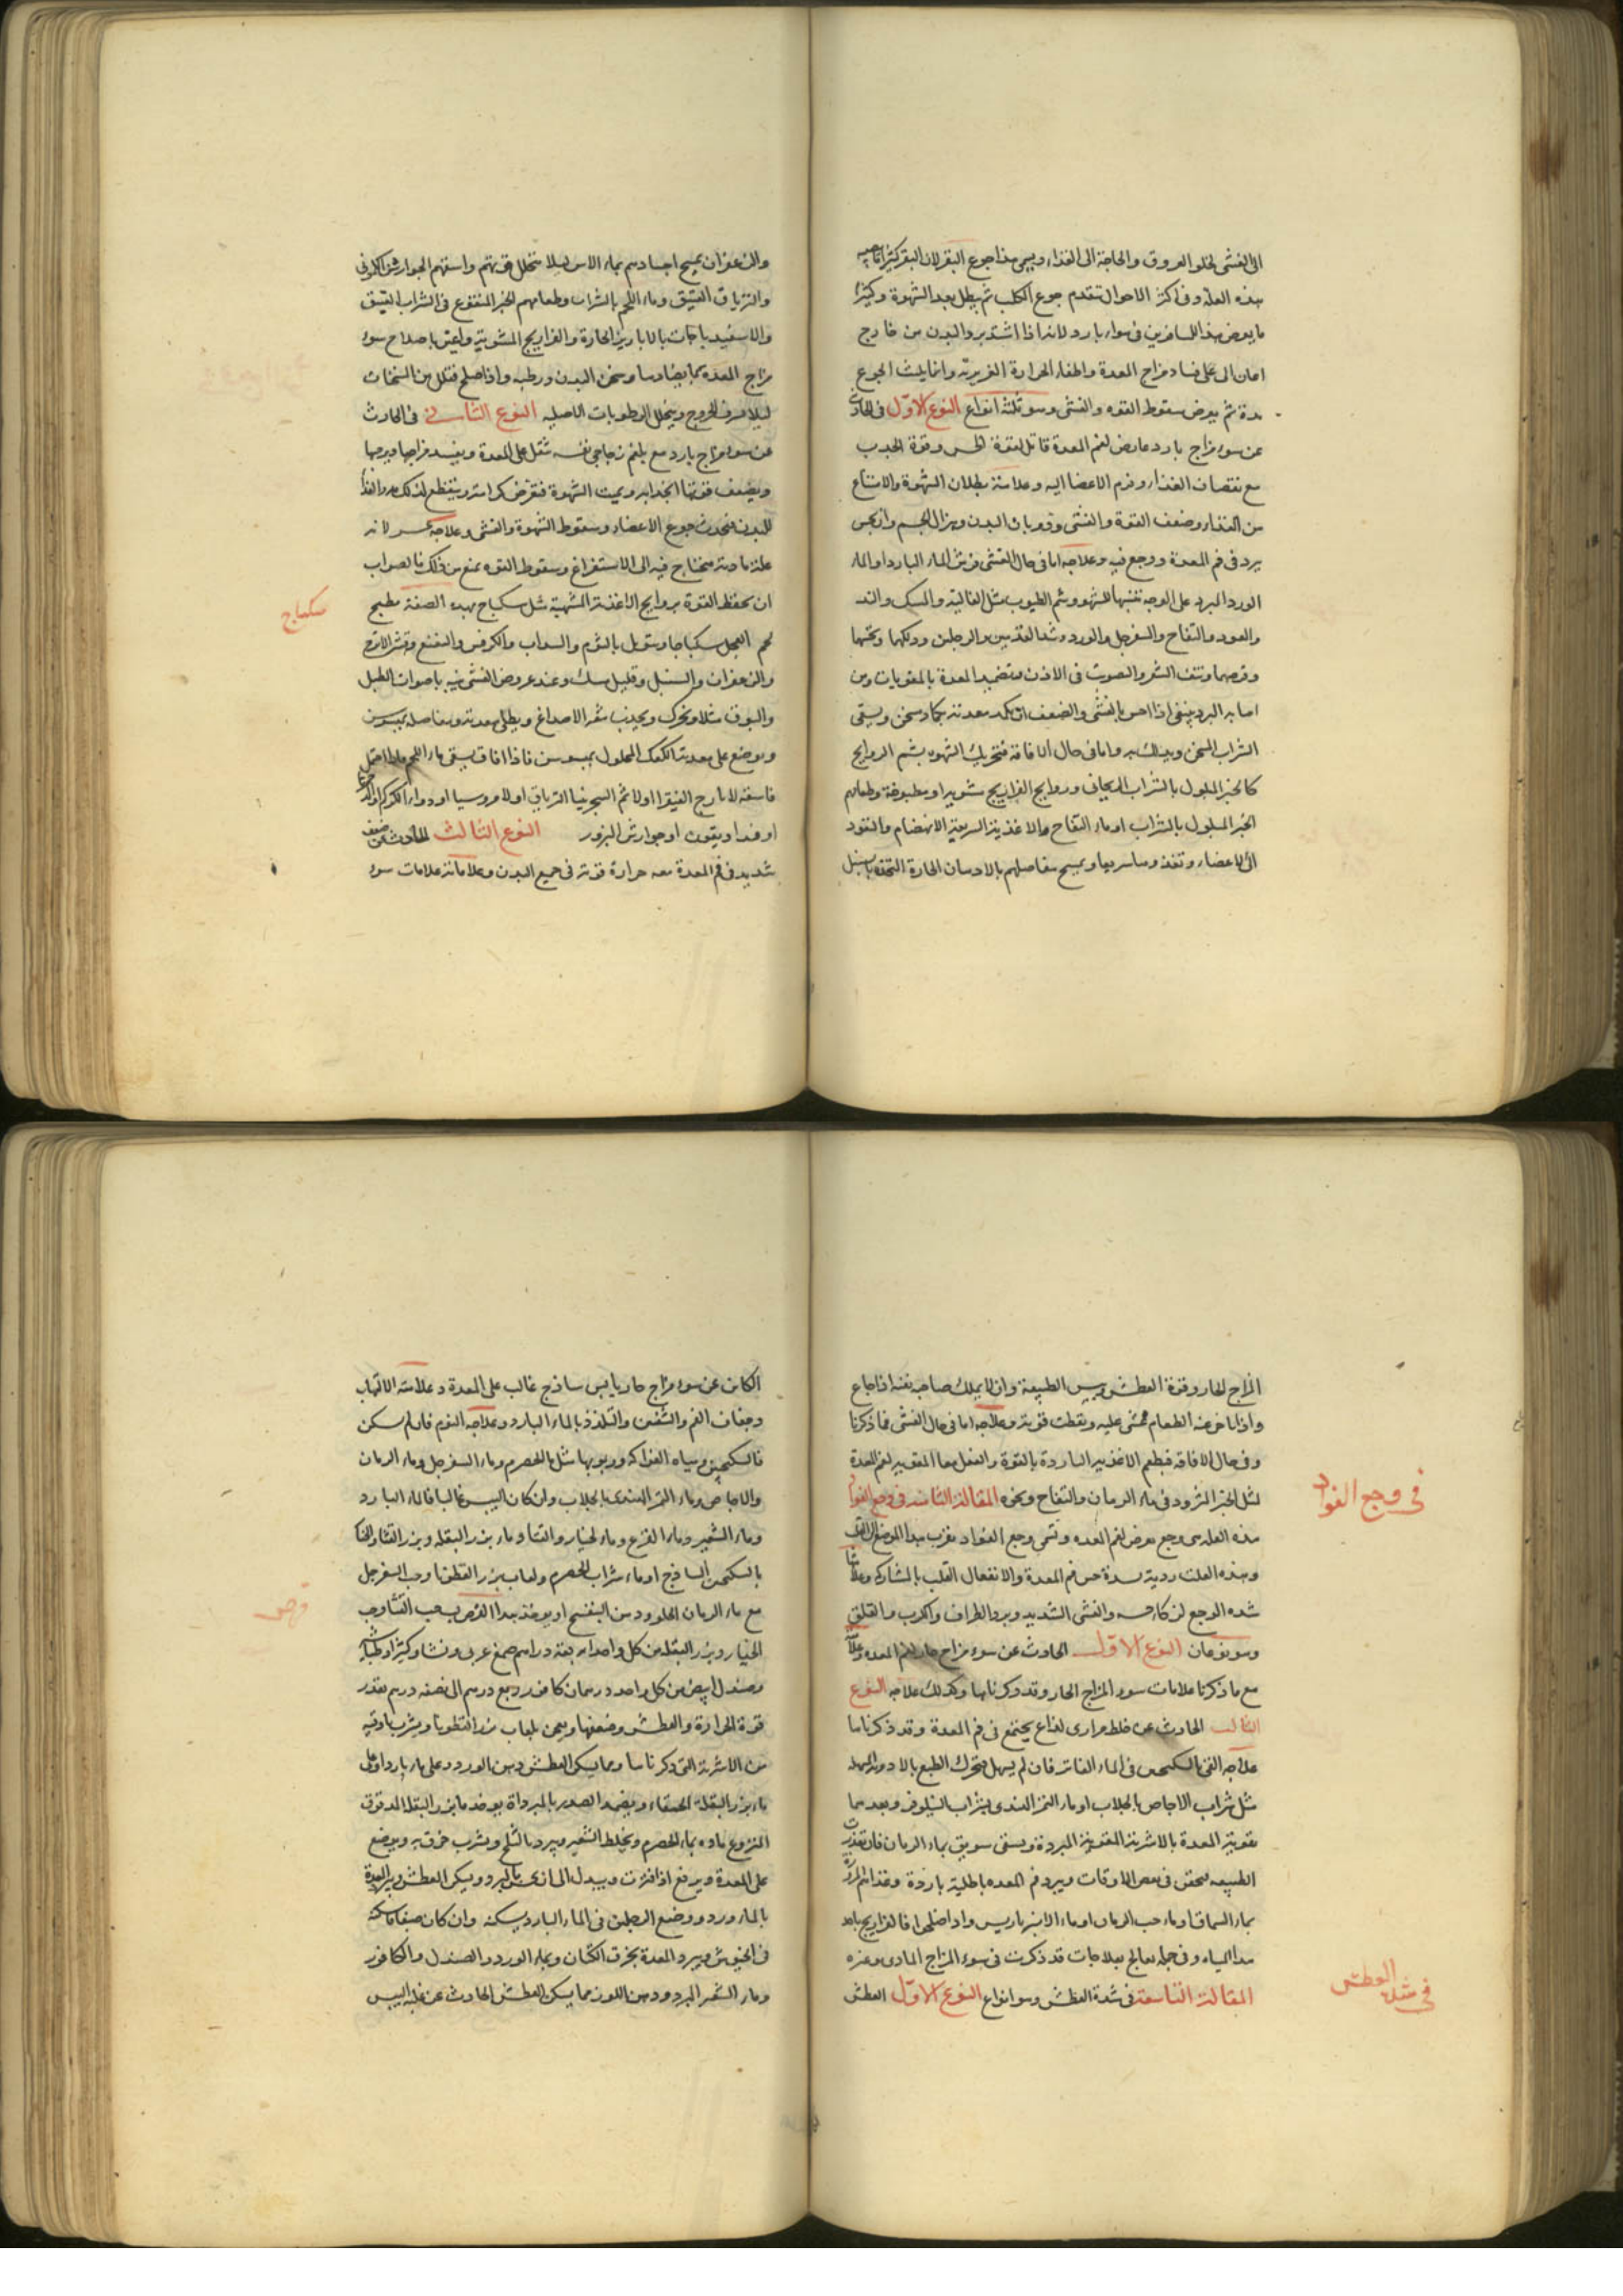 الى الغشى لخلو العروق والحاجة الى الغذاء ويسمى هذا جوع البقر لان البقر كثيرا تصيبه
هذه العلة وفى اكثر الاحوال تتقدم جوع الكلب ثم يبطل بعد الشهوة وكثيرا
ما يعرض هذا للمسافرين فى هواء بارد لانه اذا اشتد برد البدن من خارج
على فساد مزاج المعدة واطفاء الحرارة الغريزية وانما يلبث الجوع
مدة ثم يعرض سقوط القوه والغشى وهو ثلثة انواع النوع الاول فى الحادث
عن سوء مزاج بارد عارض لفم المعدة قاتل لقوة الحس وقوة الجذب
مع نقصان الغذاء وعدم الاعضا اليه وعلامته بطلان الشهوة والامتناع
من الغذاء وضعف القوة والغشى وذوبان البدن وهزال الجسم وان يحس
برد فى فم المعدة ووجع فيه وعلاجه اما فى حال الغشى فرش الماء البارد او الماء
الورد المبرد على الوجه تنبيها للشهوة وشم الطيوب مثل الغالية والمسك والند
والعود والتفاح والسفرجل والورد وشد القدمين والرجلين ودلكهما
وقرصهما ونتف الشعر والصوت فى الاذن وتضميد المعدة بالمقويات ومن
اصابه البرد ينبغى اذا احس بالغشى والضعف ان تكمد معدته بكماد سخن ويسقى
الشراب السخن واما فى حال الافاقة فتحريك الشهوه بشم الروايح
كالخبز المبلول بالشراب الريحانى وروايح الفراريج مشوية او مطبوخة وطعامهم
الخبز المبلول بالشراب او ماء التفاح والاغذية السريعة الانهضام والنفوذ
الى الاعضاء ويمسح مفاصلهم بالادهان الحارة المتخذه بالسنبل
والزعفران يمسح اجسادهم بماء الاس ليلا تتحلل قوتهم واسقهم الجوارش الكمونى
والترياق العتيق وماء اللحم بالشراب وطعامهم الخبز المنقوع فى الشراب العتيق
والاسفيد باجات بالابازير الحارة والفراريج المشوية واعتن باصلاح سوء
مزاج المعده بما يضادها وسخن البدن ورطبه واذا صلح فقلل من السخنات
ليلا يسرف الخروج ويتحلل الرطوبات الاصليه النوع الثانى فى الحادث
عن سوء مزاج بارد مع بلغم زجاجى تثقل على المعدة ويفسد مزاجها ويرخيها
ويضعف قوتها الجذابه ويميت الشهوة
للبدن فيحدث جوع الاعضاء وسقوط الشهوة والغشى وعلاجه عسر لانه
علة مادية محتاج فيه الى الاستفراغ وسقوط القوه يمنع من ذلك فالصواب
ان تحفظ القوة بروايح الاغذية المشهية مثل سكباج بهذه الصفة يطبخ
لحم العجل سكباجا وتوبل بالثوم والسداب والكرفس والنعنع وقشر الاترج
والزعفران والسنبل وقليل مسك وعند عروض الغشى ينبه باصوات الطبل
والبوق مثلا ويحرك ويجذب شعر الاصداغ ويطلى معدته ومفاصله بميسوسن
ويوضع على معدته الكعك المحلول بميسوسن فاذا افاق يسقى ماء اللحم
فاسقه الايارج الفيقرا اولا ثم السجزنيا الترياق او دواء الكركم
او فنداديقون او جوارش البزور النوع الثالث الحادث عن ضعف
شديد فى فم المعدة معه حرارة قوية فى جميع البدن وعلامات سوء
سكباج
المزاج الحار وقوة العطش ويبس الطبيعة وان لا يملك صاحبه نفسه اذا جاع
واذا تاخر عنه الطعام غشى عليه وسقطت قوته وعلاجه اما فى حال الغشى فما ذكرنا
وفى حال الافاقة فبطعم الاغذية الباردة بالقوة والفعل معا المقوية لفم المعدة
مثل الخبز المثرود فى ماء الرمان والتفاح ونحوه المقالة الثامنه فى وجع الفواد
هذه العلة هى وجع يعرض لفم المعده وتسمى وجع الفواد لقرب هذا الموضع من القلب
وهذه العلة ردية لشدة حس فم المعدة والانفعال القلب بالمشاركه
شده الوجع والغشى الشديد وبرد الاطراف والكرب والقلق
وهو نوعان النوع الاول الحادث عن سوء مزاج حار لفم المعده
مع ما ذكرنا علامات سوء المزاج الحار وقد ذكرناها وكذلك علاجه النوع
الثانى الحادث عن خلط مرارى لذاع يجتمع فى فم المعدة وقد ذكرناها
علاجه القى بالسكنجبين فى الماء الفاتر فان لم يسهل فتحرك الطبع بالادوية المسهله
مثل شراب الاجاص بالجلاب او ماء التمر الهندى بشراب النيلوفر وبعدهما
تقوية المعدة بالاشربة المقوية المبردة ويسقى سويق بماء الرمان فان تعذرت
الطبيعه فحقن فى بعض الاوقات ويبرد فم المعده باطلية باردة
بماء السماق او ماء حب الرمان او ماء الانبرباريس واذا اضطجعوا فالفراريج
هذا المياه وفى جمله يعالج بعلاجات قد ذكرت فى سوء المزاج المادى وغيره
المقالة التاسعة فى شدة العطش وهو انواع النوع الاول العطش
فى وجع الفواد
فى شدة العطش
الكاين عن سوء مزاج حار يابس ساذج غالب على المعدة وعلامته الالتهاب
وجفاف الفم والشفتين والتلذذ بالماء البارد وعلاجه النوم فان لم يسكن
فالسكنجبين ومياه الفواكه وربوبها مثل الحصرم وماء السفرجل وماء الرمان
والاجاص وماء التمر الهندى بالجلاب وان كان اليبس غالبا فالماء البارد
وماء الشعير وماء القرع وماء الخيار والقثا وماء بزر البقله وبزر القثاء
بالسكنجبين الساذج او ماء شراب الحصرم ولعاب بزر القطونا وحب السفرجل
مع ماء الرمان الحلو ودهن البنفسج او يوخذ هذا القرص لب حب القثا وحب
الخيار وبزر البقله من كل واحد اربعة دراهم صمغ عربى ونشا وكثيرا وطباشير
وصندل ابيض من كل واحد درهمان كافور ربع درهم الى نصف درهم بقدر
قوة الحرارة والعطش وضعفها ويعجن بلعاب بزر القطونا ويشرب باوقية
من الاشربة التى ذكرناها ومما يسكن العطش دهن الورد على ماء بارد او على
ماء بزر البقله الحمقاء ويضمد الصدر بالمبرداة يوخذ ماء بزر البقله المدقوق
المنزوع ماوه بماء الحصرم ويخلط الشعير ويبرد بالثلج ويشرب خرق به ويوضع
على المعدة ويرفع اذا فترت ويبدل ويسكن العطش ويبرد المعدة
بالماء ورد ووضع الرجلين فى الماء البارد يسكنه وان كان صيفا
فى الخيوش ويبرد المعدة بخرق الكتان وبماء الورد والصندل والكافور
وماء الشعير المبرد ودهن اللوز مما يسكن العطش الحادث عن غلبة اليبس
قرص